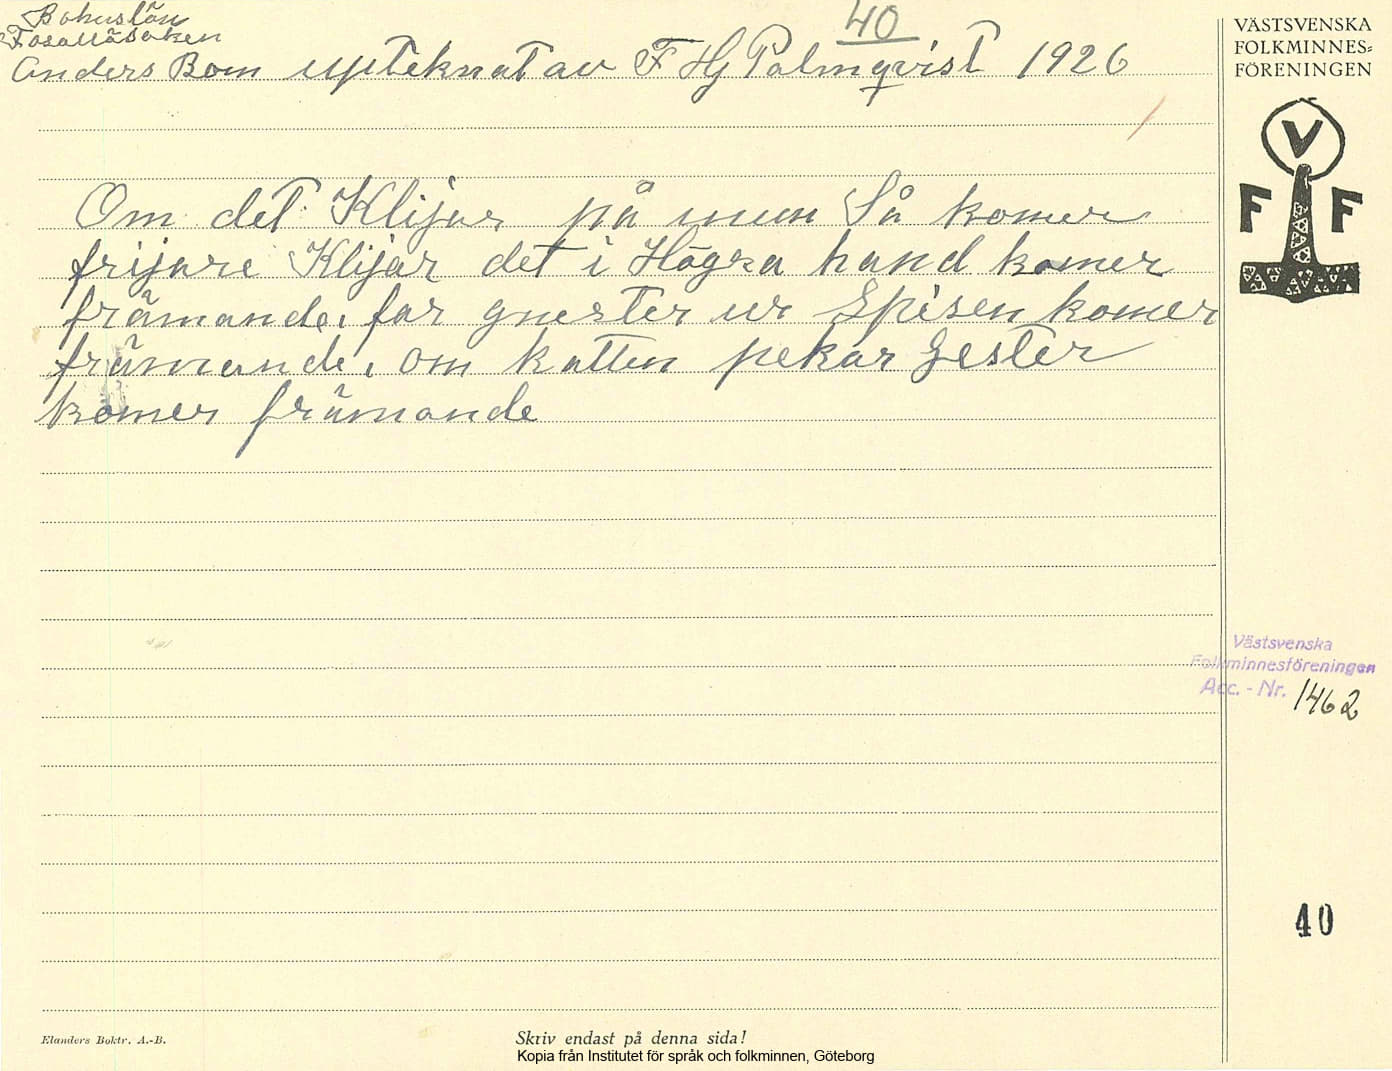 40
Bohuslän
Anders Bom upteknat av F Hj Palmqvist 1926
Om det Klijar på mun Så komer
frijare Klijar det i Högra hand komer
främande, far gnester ur Spisen komer
främande, om katten pekar Gester
komer främande
VÄSTSVENSKA
FOLKMINNES=
FÖRENINGEN
V
F F
Västsvenska
Folkminnesföreningen
Acc. - Nr. 1462
40
Elanders Boktr. A.-B.
Skriv endast på denna sida!
Kopia från Institutet för språk och folkminnen, Göteborg